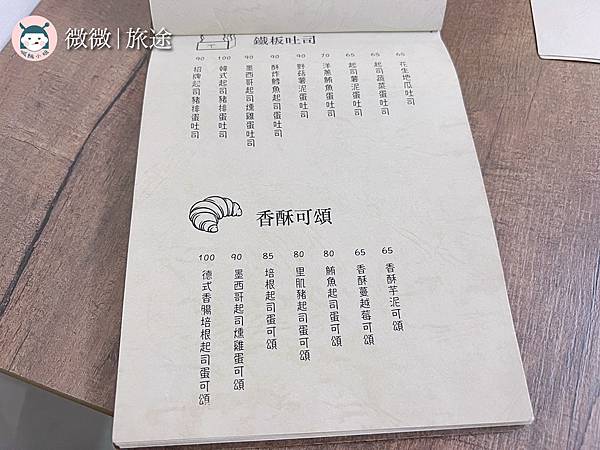 微微|旅途
鐵板吐司
65 花生地瓜吐司
65 起司蔬菜蛋吐司
65 起司薯泥蛋吐司
70 洋蔥鮪魚蛋吐司
90 野菇薯泥蛋吐司
90 酥炸鱈魚起司蛋吐司
90 墨西哥起司燻雞蛋吐司
100 韓式起司豬排蛋吐司
90 招牌起司豬排蛋吐司
香酥可頌
65 香酥芋泥可頌
65 香酥蔓越莓可頌
80 鮪魚起司蛋可頌
80 里肌豬起司蛋可頌
85 培根起司蛋可頌
90 墨西哥起司燻雞蛋可頌
100 德式香腸培根起司蛋可頌